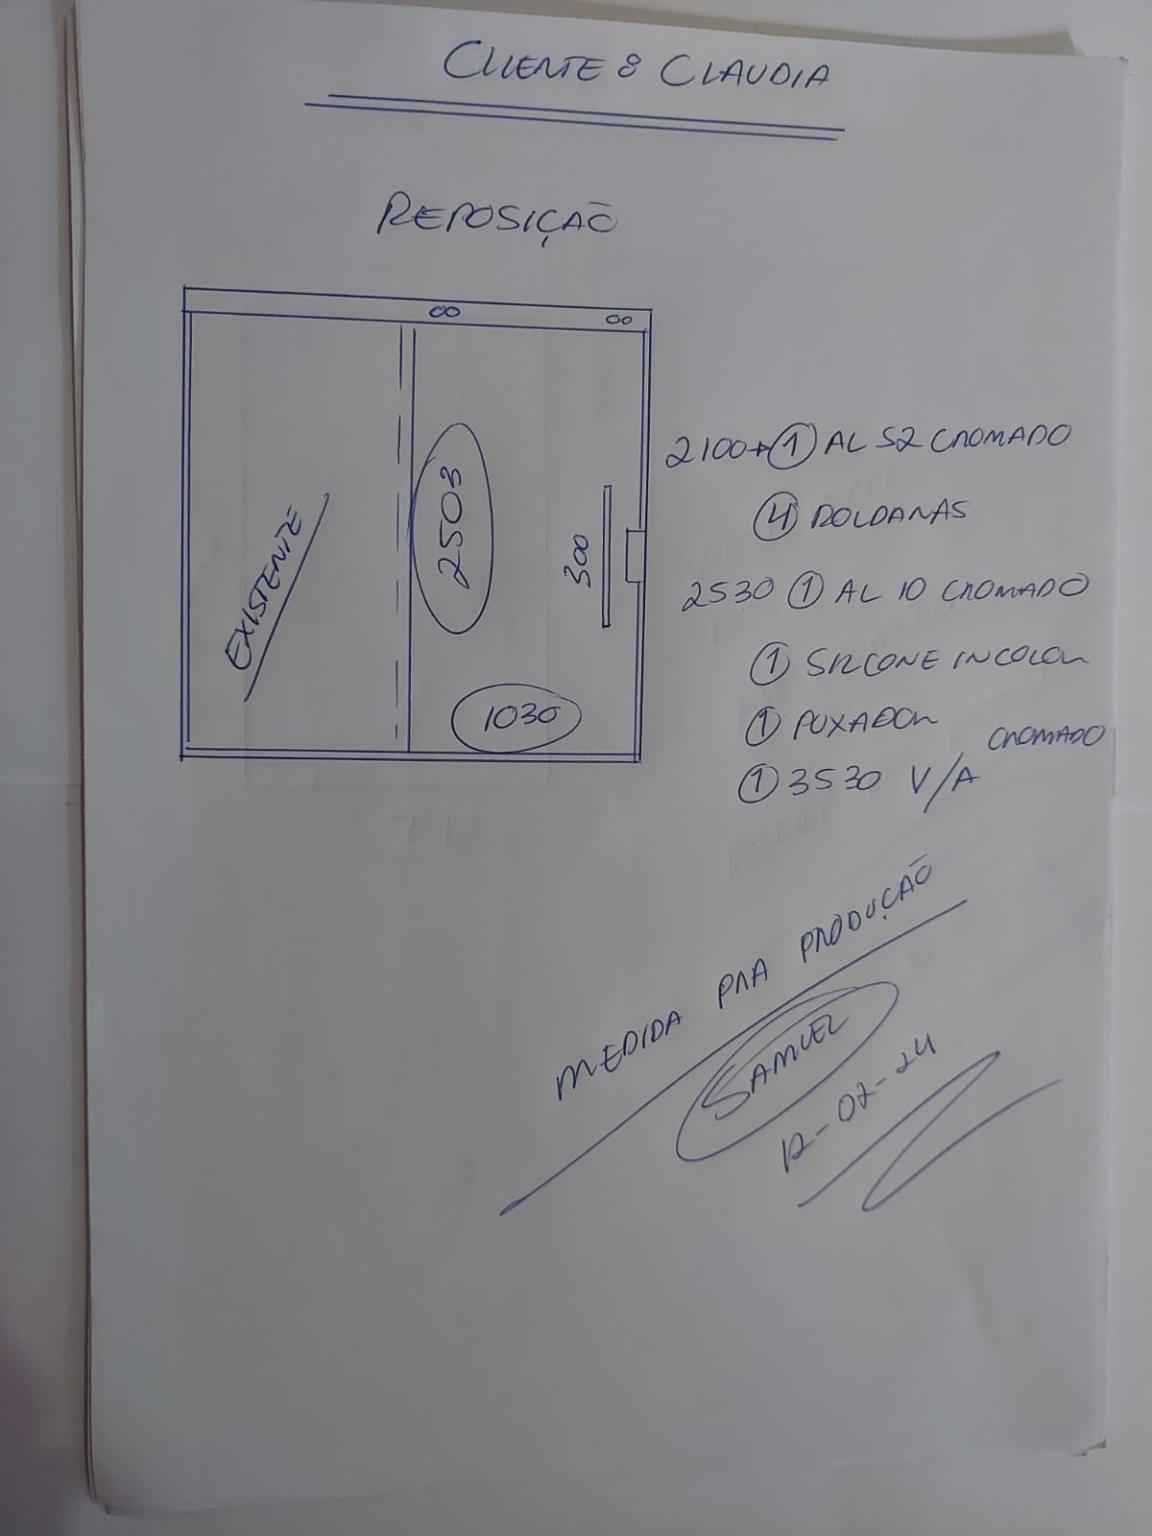 CLIENTE: CLAUDIA
REPOSIÇÃO
EXISTENTE
2503
300
1030
2100+ 1 AL 52 CROMADO
4 ROLDANAS
2530 1 AL 10 CROMADO
1 SILCONE INCOLOR
1 PUXADOR
CROMADO
1 3530 V/A
MEDIDA PRA PRODUÇÃO
SAMUEL
12-02-24